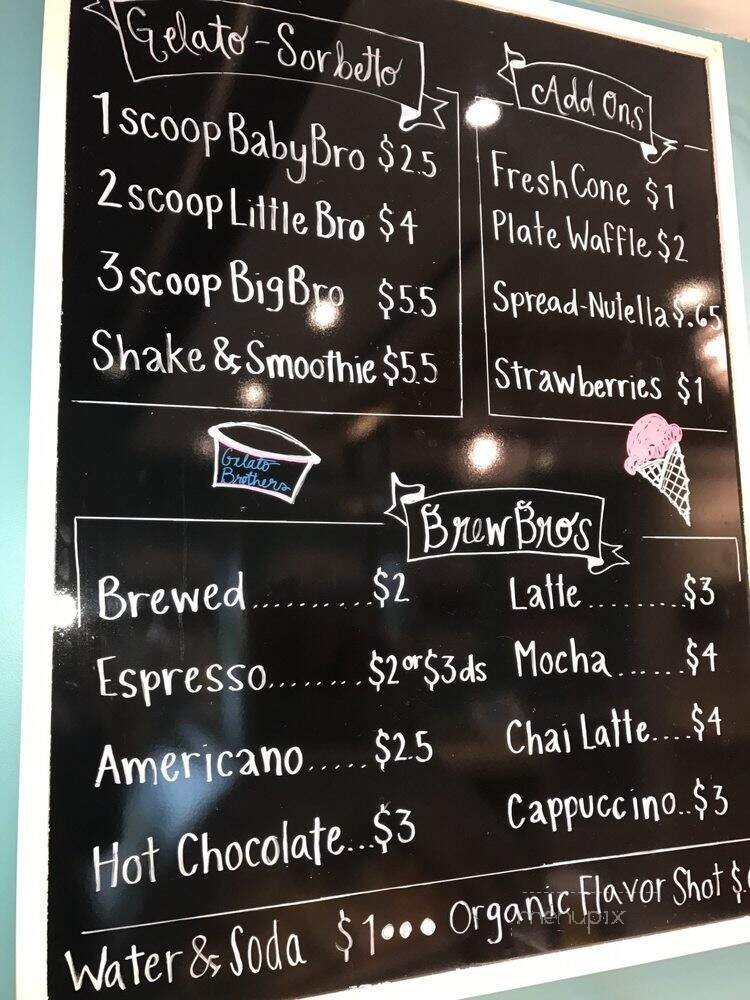 Gelato - Sorbetto
1 scoop Baby Bro $2.5
2 scoop Little Bro $4
3 scoop Big Bro $5.5
Shake & Smoothie $5.5
Add Ons
Fresh Cone $1
Plate Waffle $2
Spread-Nutella $.65
Strawberries $1
Gelato
Brothers
Brew Bros
Brewed..........$2
Espresso........$2 or $3 ds
Americano.....$2.5
Hot Chocolate...$3
Latte.........$3
Mocha......$4
Chai Latte....$4
Cappuccino..$3
Water & Soda $1••• Organic Flavor Shot $.
menupix